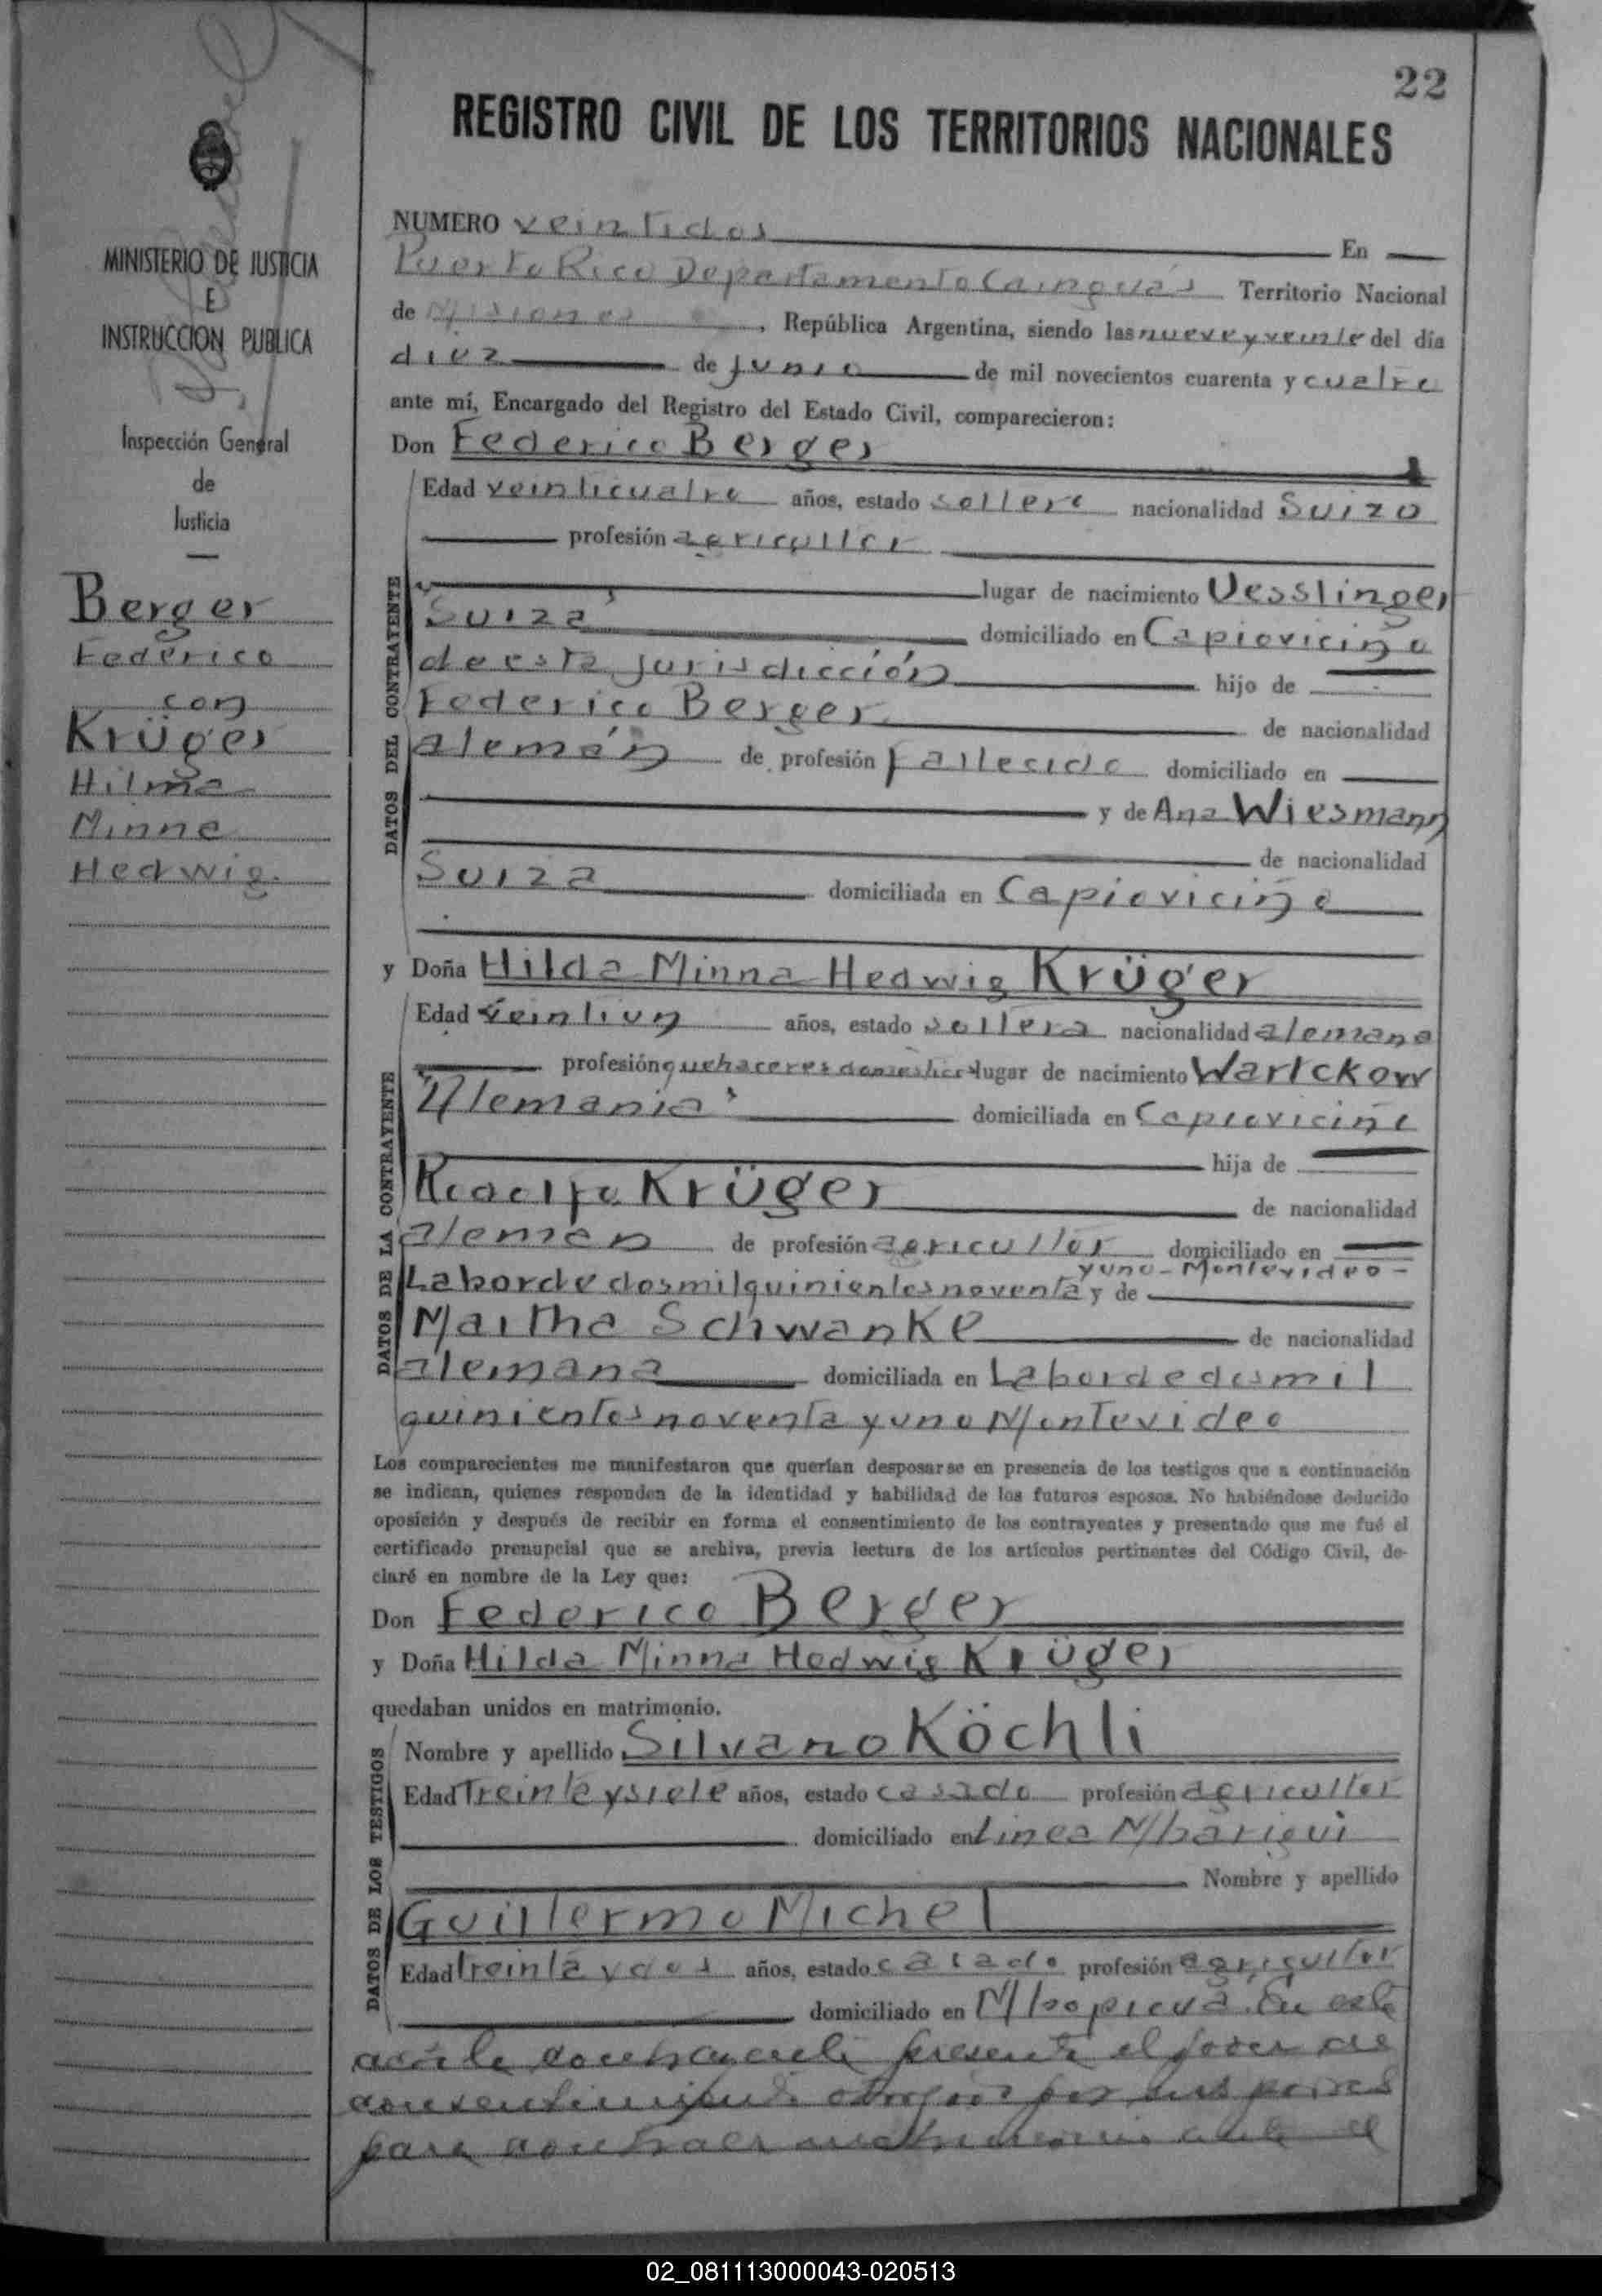 22
REGISTRO CIVIL DE LOS TERRITORIOS NACIONALES
MINISTERIO DE JUSTICIA
E
INSTRUCCION PUBLICA
Inspección General
de
Justicia
Berger
Federico
con
Krüger
Hilma
Minna
Hedwig.
NUMERO veintidos En
Puerto Rico Departamento Cainguás Territorio Nacional
de Misiones, República Argentina, siendo las nueve y veinte del día
diez de junio de mil novecientos cuarenta y cuatro
ante mí, Encargado del Registro del Estado Civil, comparecieron:
Don Federico Berger
DATOS DEL CONTRAYENTE
Edad veinticuatro años, estado soltero nacionalidad Suizo
profesión agricultor
lugar de nacimiento Uesslingen
"Suiza" domiciliado en Capiovicíño
de esta jurisdicción hijo de
Federico Berger de nacionalidad
alemán de profesión fallecido domiciliado en
y de Ana Wiesmann
de nacionalidad
Suiza domiciliada en Capioviciño
y Doña Hilda Minna Hedwig Krüger
DATOS DE LA CONTRAYENTE
Edad veintiun años, estado soltera nacionalidad alemana
profesión quehaceres domésticos lugar de nacimiento Wartckow
"Alemania" domiciliada en Capioviciño
hija de
Rodolfo Krüger de nacionalidad
alemán de profesión agricultor domiciliado en
y uno - Montevideo -
Laborde dos mil quinientos noventa y de
Martha Schwanke de nacionalidad
alemana domiciliada en Laborde dos mil
quinientos noventa y uno Montevideo
Los comparecientes me manifestaron que querían desposarse en presencia de los testigos que a continuación
se indican, quienes responden de la identidad y habilidad de los futuros esposos. No habiéndose deducido
oposición y después de recibir en forma el consentimiento de los contrayentes y presentado que me fué el
certificado prenupcial que se archiva, previa lectura de los artículos pertinentes del Código Civil, de-
claré en nombre de la Ley que:
Don Federico Berger
y Doña Hilda Minna Hedwig Krüger
quedaban unidos en matrimonio.
DATOS DE LOS TESTIGOS
Nombre y apellido Silvano Köchli
Edad treinta y siete años, estado casado profesión agricultor
domiciliado en Linea Mbarigui
Nombre y apellido
Guillermo Michel
Edad treinta y dos años, estado casado profesión agricultor
domiciliado en Mbopicuá. En este
acto la contrayente presenta el poder de
consentimiento otorgado por sus padres
para contraer matrimonio ante el
02_081113000043-020513